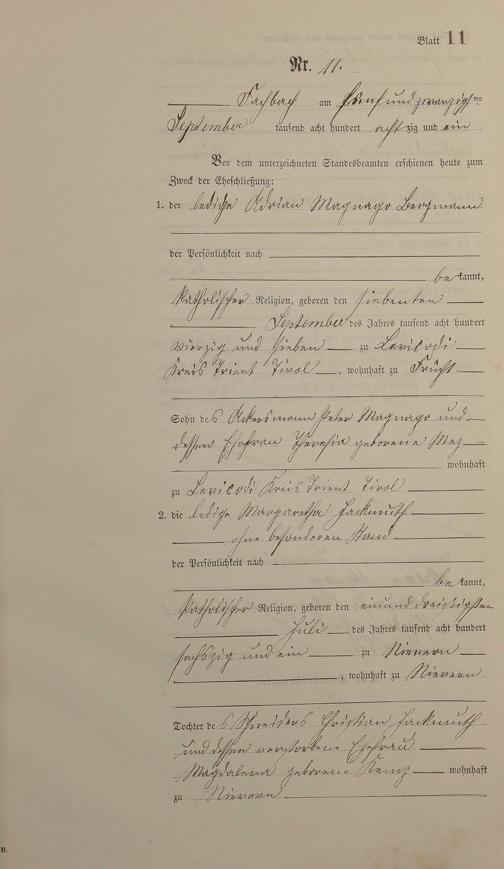 Blatt 11
Nr. 11.
Fachbach am fünfundzwanzigsten
September tausend acht hundert achtzig und ein
Vor dem unterzeichneten Standesbeamten erschienen heute zum
Zweck der Eheschließung:
1. der ledige Adrian Magnago Bergmann
der Persönlichkeit nach
be kannt,
katholischer Religion, geboren den siebenten
September des Jahres tausend acht hundert
vierzig und sieben zu Levicodi
Kreis Trient Tirol, wohnhaft zu Frücht
Sohn des Ackersmann Peter Magnago und
dessen Ehefrau Theresia geborene Mez
wohnhaft
zu Levicodi Kreis Trient Tirol
2. die ledige Margaretha Hackmuth
ohne besonderen Stand
der Persönlichkeit nach
be kannt,
katholischer Religion, geboren den einunddreißigsten
Juli des Jahres tausend acht hundert
sechszig und ein zu Nievern
, wohnhaft zu Nievern
Tochter des Schneiders Christian Hackmuth
und dessen verstorbene Ehefrau
Magdalena geborene wohnhaft
zu Nievern
B.